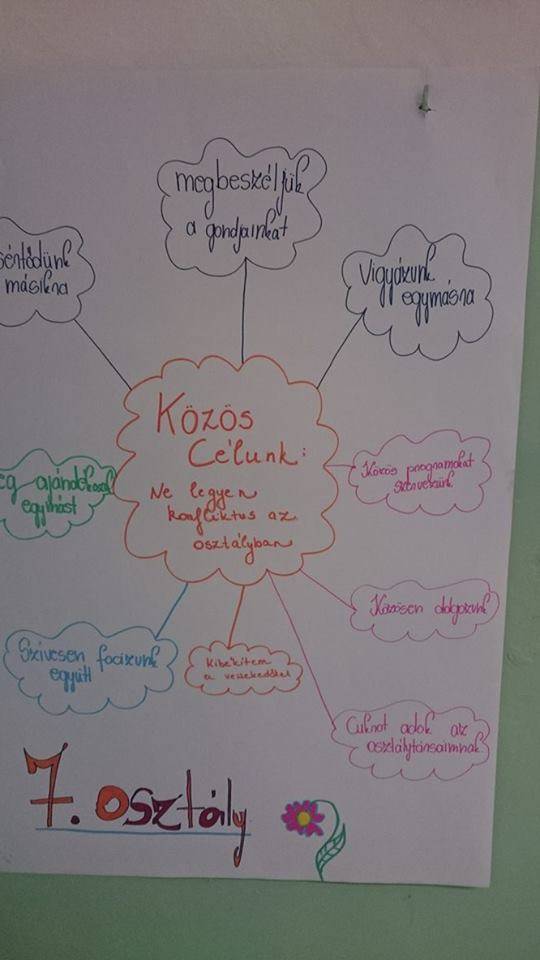 megbeszéljük
a gondjainkat
másikra
Vigyázunk
egymásra
Közös
Célunk:
Ne legyen
konfliktus az
osztályban
egymást
Közös programokat
szervezünk
Közösen dolgozunk
Szívesen focizunk
együtt
Kibékítem
a veszekedőket
Cukrot adok az
osztálytársaimnak
7. Osztály